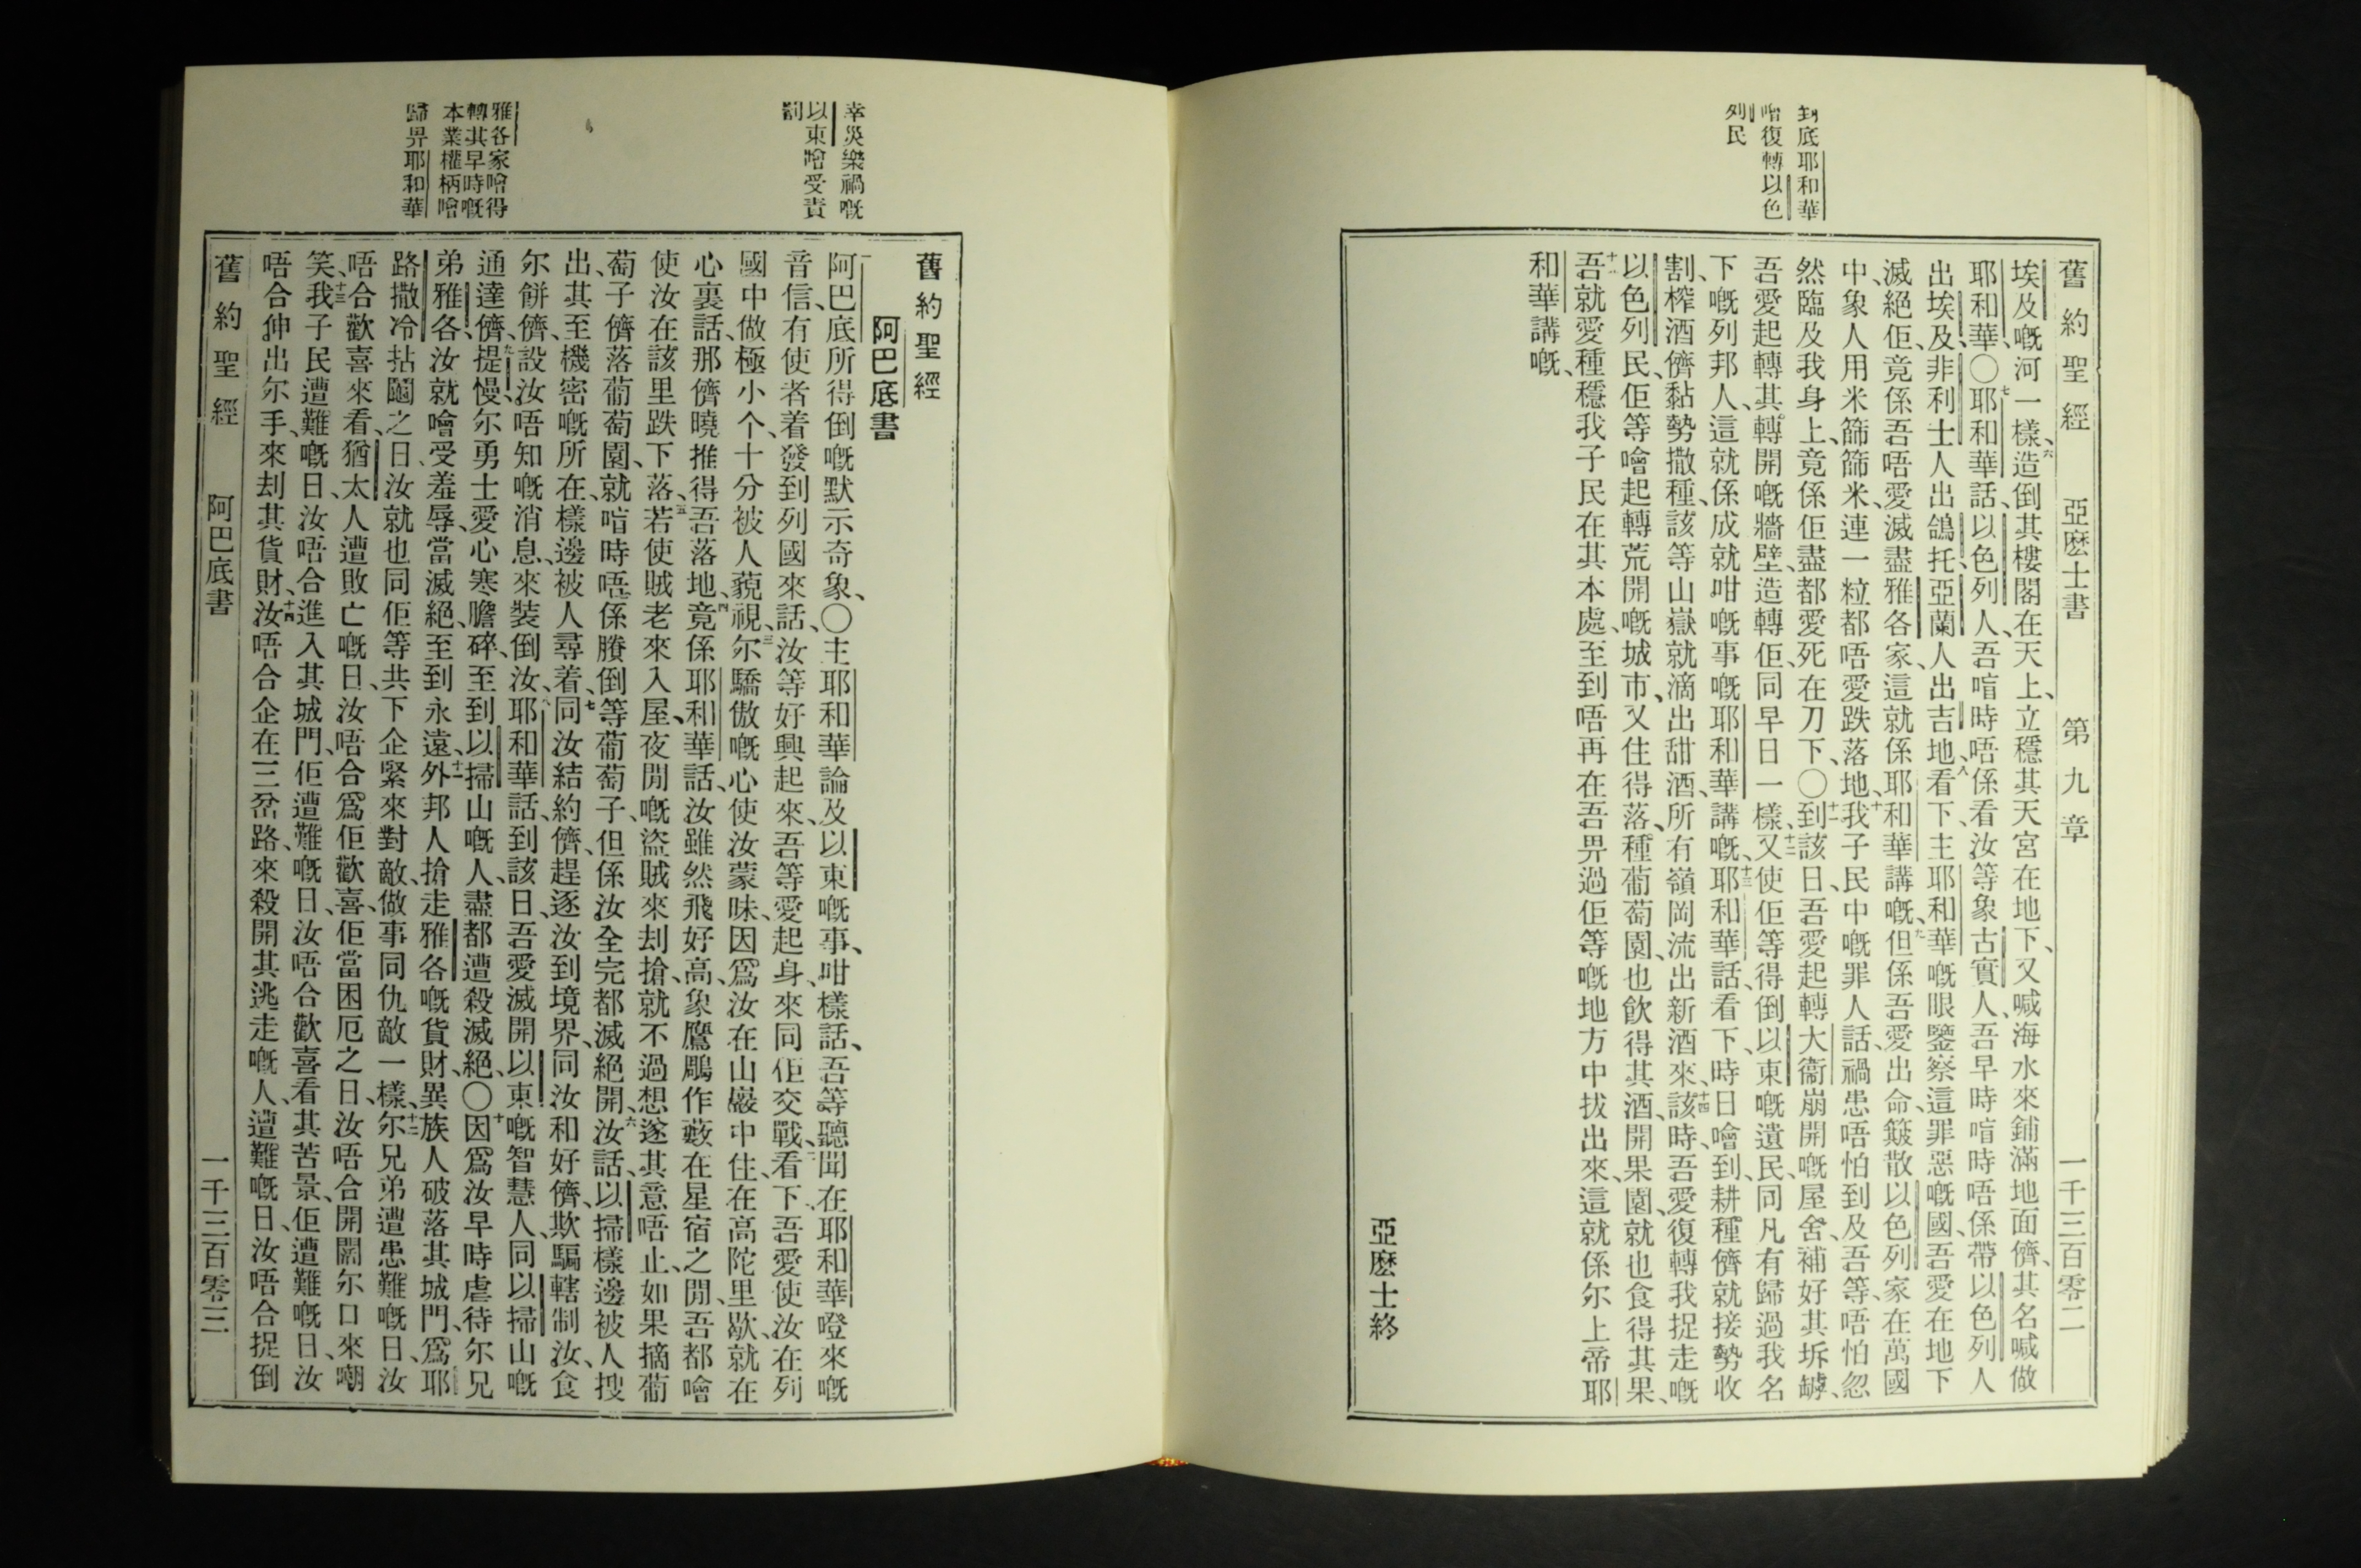 到底耶和華
噲復轉以色
列民
舊約聖經 亞麽士書 第九章 一千三百零二
埃及嘅河一樣、六造倒其樓閣在天上、立穩其天宮在地下、又喊海水來鋪滿地面儕、其名喊做
耶和華、〇七耶和華話、以色列人、吾喑時唔係看汝等象古實人、吾早時喑時唔係帶以色列人
出埃及、非利士人出鴿托、亞蘭人出吉地、八看下、主耶和華嘅眼鑒察這罪惡嘅國、吾愛在地下
滅絕佢、竟係吾唔愛滅盡雅各家、這就係耶和華講嘅、九但係吾愛出命、簸散以色列家在萬國
中、象人用米篩篩米、連一粒都唔愛跌落地、十我子民中嘅罪人話、禍患唔怕到及吾等、唔怕忽
然臨及我身上、竟係佢盡都愛死在刀下、〇十一到該日、吾愛起轉大衞崩開嘅屋舍、補好其坼罅、
吾愛起轉其轉開嘅牆壁、造轉佢、同早日一樣、十二又使佢等得倒以東嘅遺民、同凡有歸過我名
下嘅列邦人、這就係成就咁嘅事嘅耶和華講嘅、十三耶和華話、看下、時日噲到、耕種儕就接勢收
割、榨酒儕黏勢撒種、該等山嶽就滴出甜酒、所有嶺岡流出新酒來、十四該時、吾愛復轉我捉走嘅
以色列民、佢等噲起轉荒開嘅城市、又住得落、種葡萄園、也飲得其酒、開果園、就也食得其果、
吾就愛種穩我子民在其本處、至到唔再在吾畀過佢等嘅地方中拔出來、這就係尔上帝耶
和華講嘅、
亞麽士終
幸災樂禍嘅
以東噲受責
罰
雅各家噲得
轉其早時嘅
本業權柄噲
歸畀耶和華
舊約聖經
阿巴底書
阿巴底所得倒嘅默示奇象、〇主耶和華論及以東嘅事、咁樣話、吾等聽聞在耶和華𡀔來嘅
音信、有使者着發到列國來話、汝等好興起來、吾等愛起身、來同佢交戰、二看下、吾愛使汝在列
國中做極小个、十分被人藐視、三尔驕傲嘅心使汝蒙昧、因爲汝在山巖中住、在高陀里歇、就在
心裏話、那儕曉推得吾落地、四竟係耶和華話、汝雖然飛好高、象鷹鵰作藪在星宿之閒、吾都噲
使汝在該里跌下落、五若使賊老來入屋、夜閒嘅盜賊來刦搶、就不過想遂其意唔止、如果摘葡
萄子儕落葡萄園、就喑時唔係賸倒等葡萄子、但係汝全完都滅絕開、六汝話、以掃樣邊被人搜
出、其至機密嘅所在、樣邊被人尋着、七同汝結約儕、趕逐汝到境界、同汝和好儕、欺騙轄制汝、食
尔餅儕、設汝唔知嘅消息、來裝倒汝、八耶和華話、到該日、吾愛滅開以東嘅智慧人、同以掃山嘅
通達儕、九提慢尔勇士愛心寒膽碎、至到以掃山嘅人、盡都遭殺滅絕、〇十因爲汝早時虐待尔兄
弟雅各、汝就噲受羞辱、當滅絕至到永遠、十一外邦人搶走雅各嘅貨財、異族人破落其城門、爲耶
路撒冷拈鬮之日、汝就也同佢等共下企緊來對敵、做事同仇敵一樣、十二尔兄弟遭患難嘅日、汝
唔合歡喜來看、猶太人遭敗亡嘅日、汝唔合爲佢歡喜、佢當困厄之日、汝唔合開闊尔口來嘲
笑、十三我子民遭難嘅日、汝唔合進入其城門、佢遭難嘅日、汝唔合歡喜看其苦景、佢遭難嘅日、汝
唔合伸出尔手、來刦其貨財、十四汝唔合企在三岔路、來殺開其逃走嘅人、遭難嘅日、汝唔合捉倒
舊約聖經 阿巴底書 一千三百零三